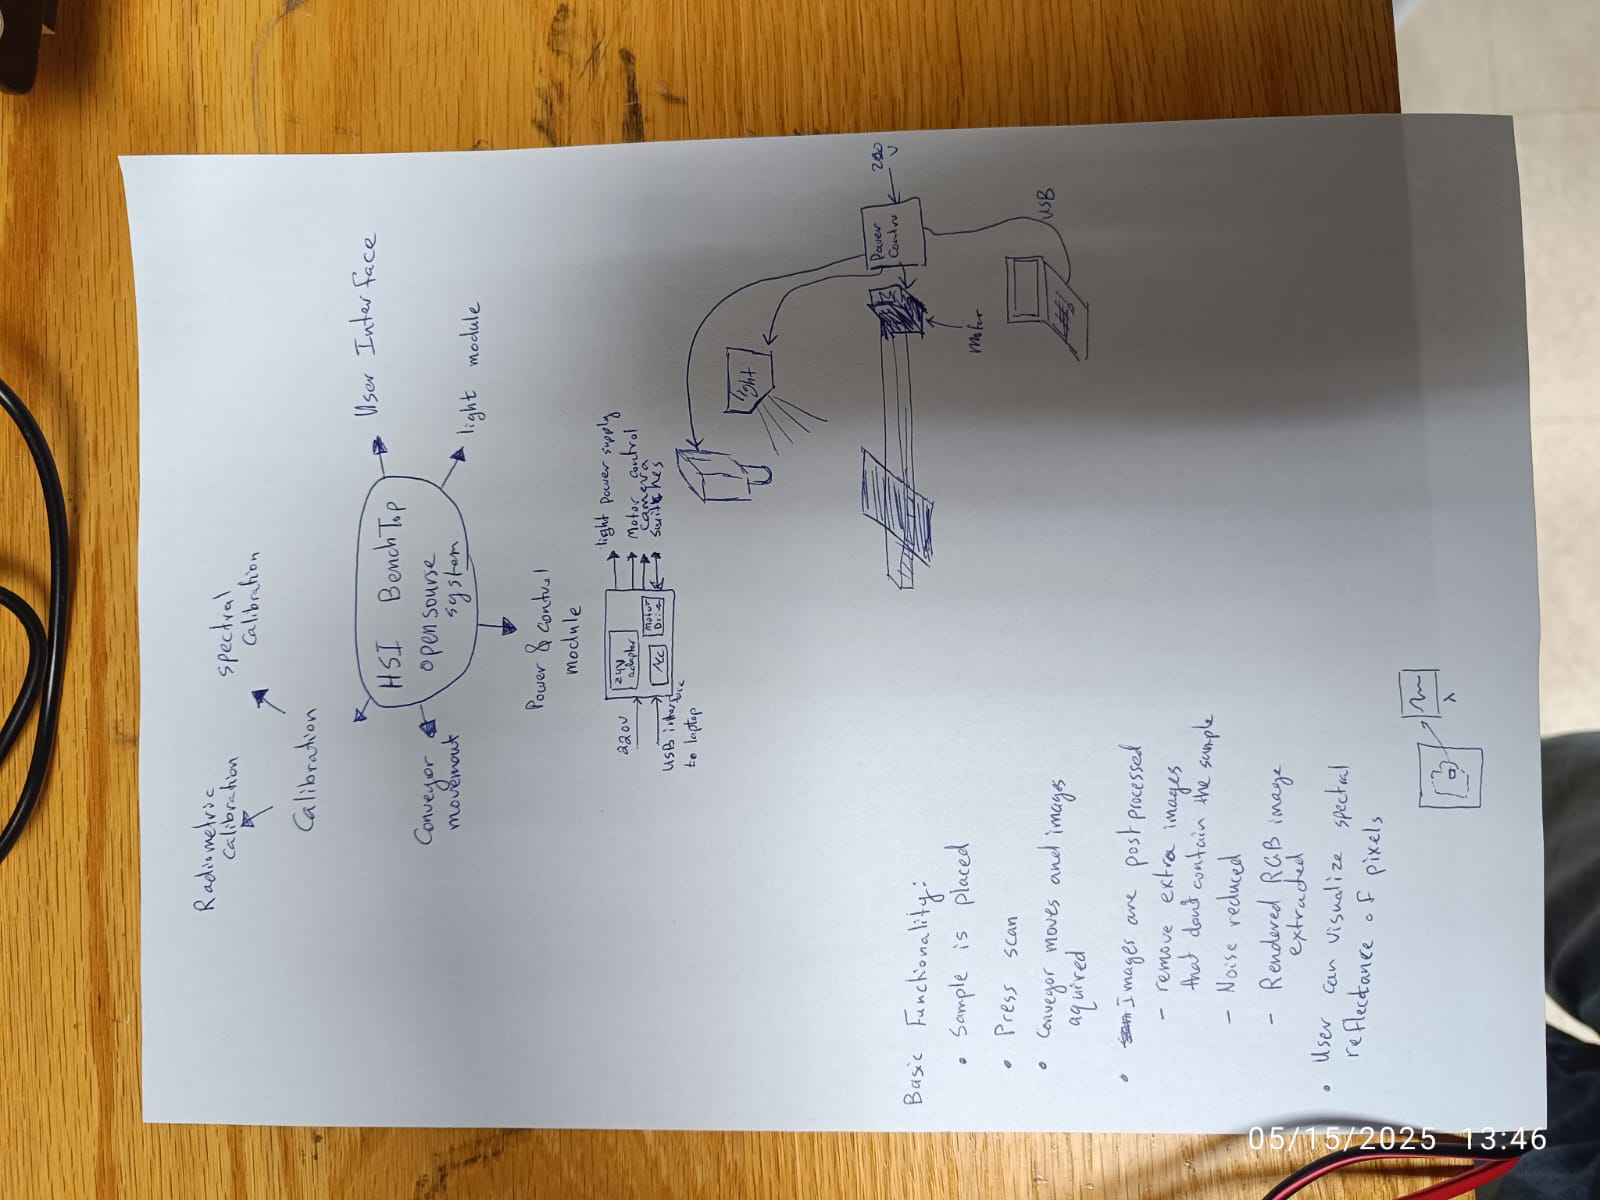 Radiometric
Calibration
spectral
Calibration
Calibration
HSI BenchTop
opensource
system
User Interface
light module
Conveyor
movement
Power & Control
module
220V
24V
adapter
Motor
USB interface
to laptop
light power supply
Motor control
camera
switches
light
Power
Control
V
motor
USB
Basic Functionality:
• Sample is placed
• Press scan
• Conveyor moves and images
aquired
• Images are post processed
- remove extra images
that dont contain the sample
- Noise reduced
- Rendered RGB image
extracted
• User can visualize spectral
reflectance of pixels
λ
05/15/2025 13:46